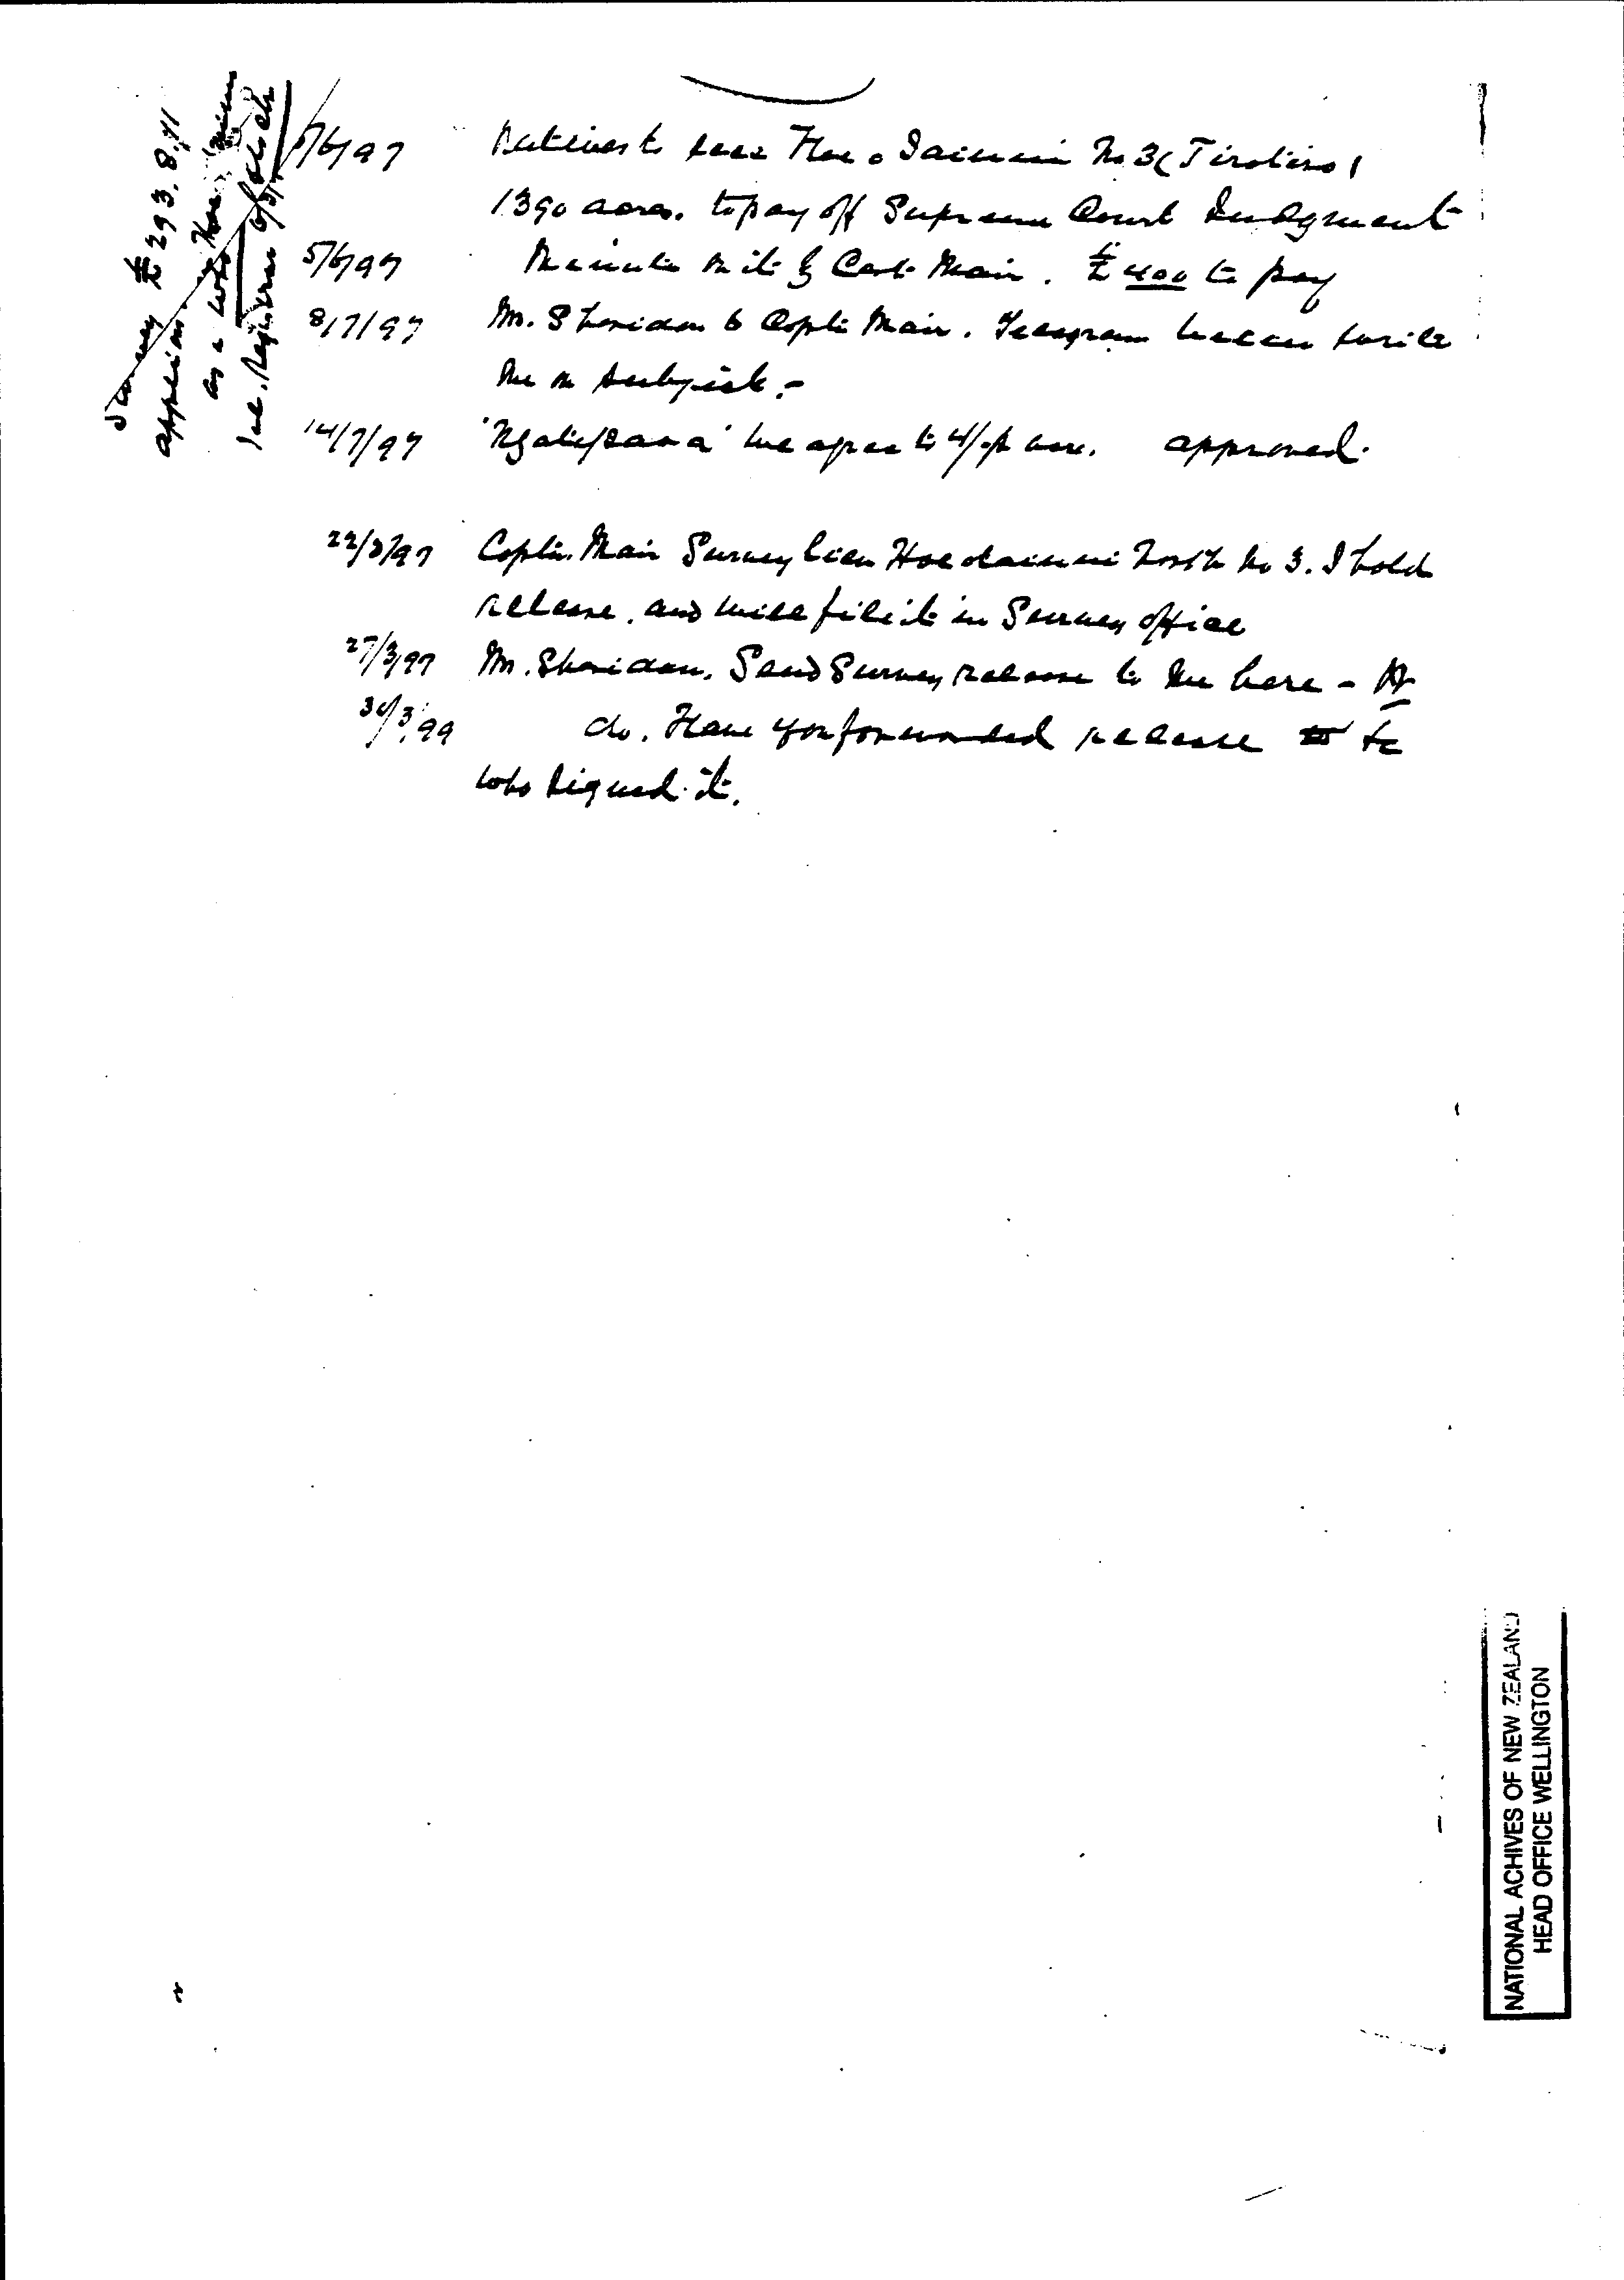 Survey £293.8.11
applies in
as a whole Hoe
see. Registrar
/6/97 Natives to sell Hoe o Tainuin No 3 (Tirotiro)
1390 acres. to pay off Supreme Court Judgment
5/6/97 Minute on it by Capt Mair. £400 to pay
8/7/97 Mr. Sheridan to Captn Mair. Telegram
me on subject.-
14/7/97 we agree to 4/- p acre. approved.
22/3/97 Captn. Mair Survey lien Hoe o Tainui North No 3. I hold
release. and will file it in Survey office
27/3/97 Mr. Sheridan. Send Survey release to me here -
30/3/99 do. Have you forwarded release to
who signed it.
NATIONAL ACHIVES OF NEW ZEALAND
HEAD OFFICE WELLINGTON